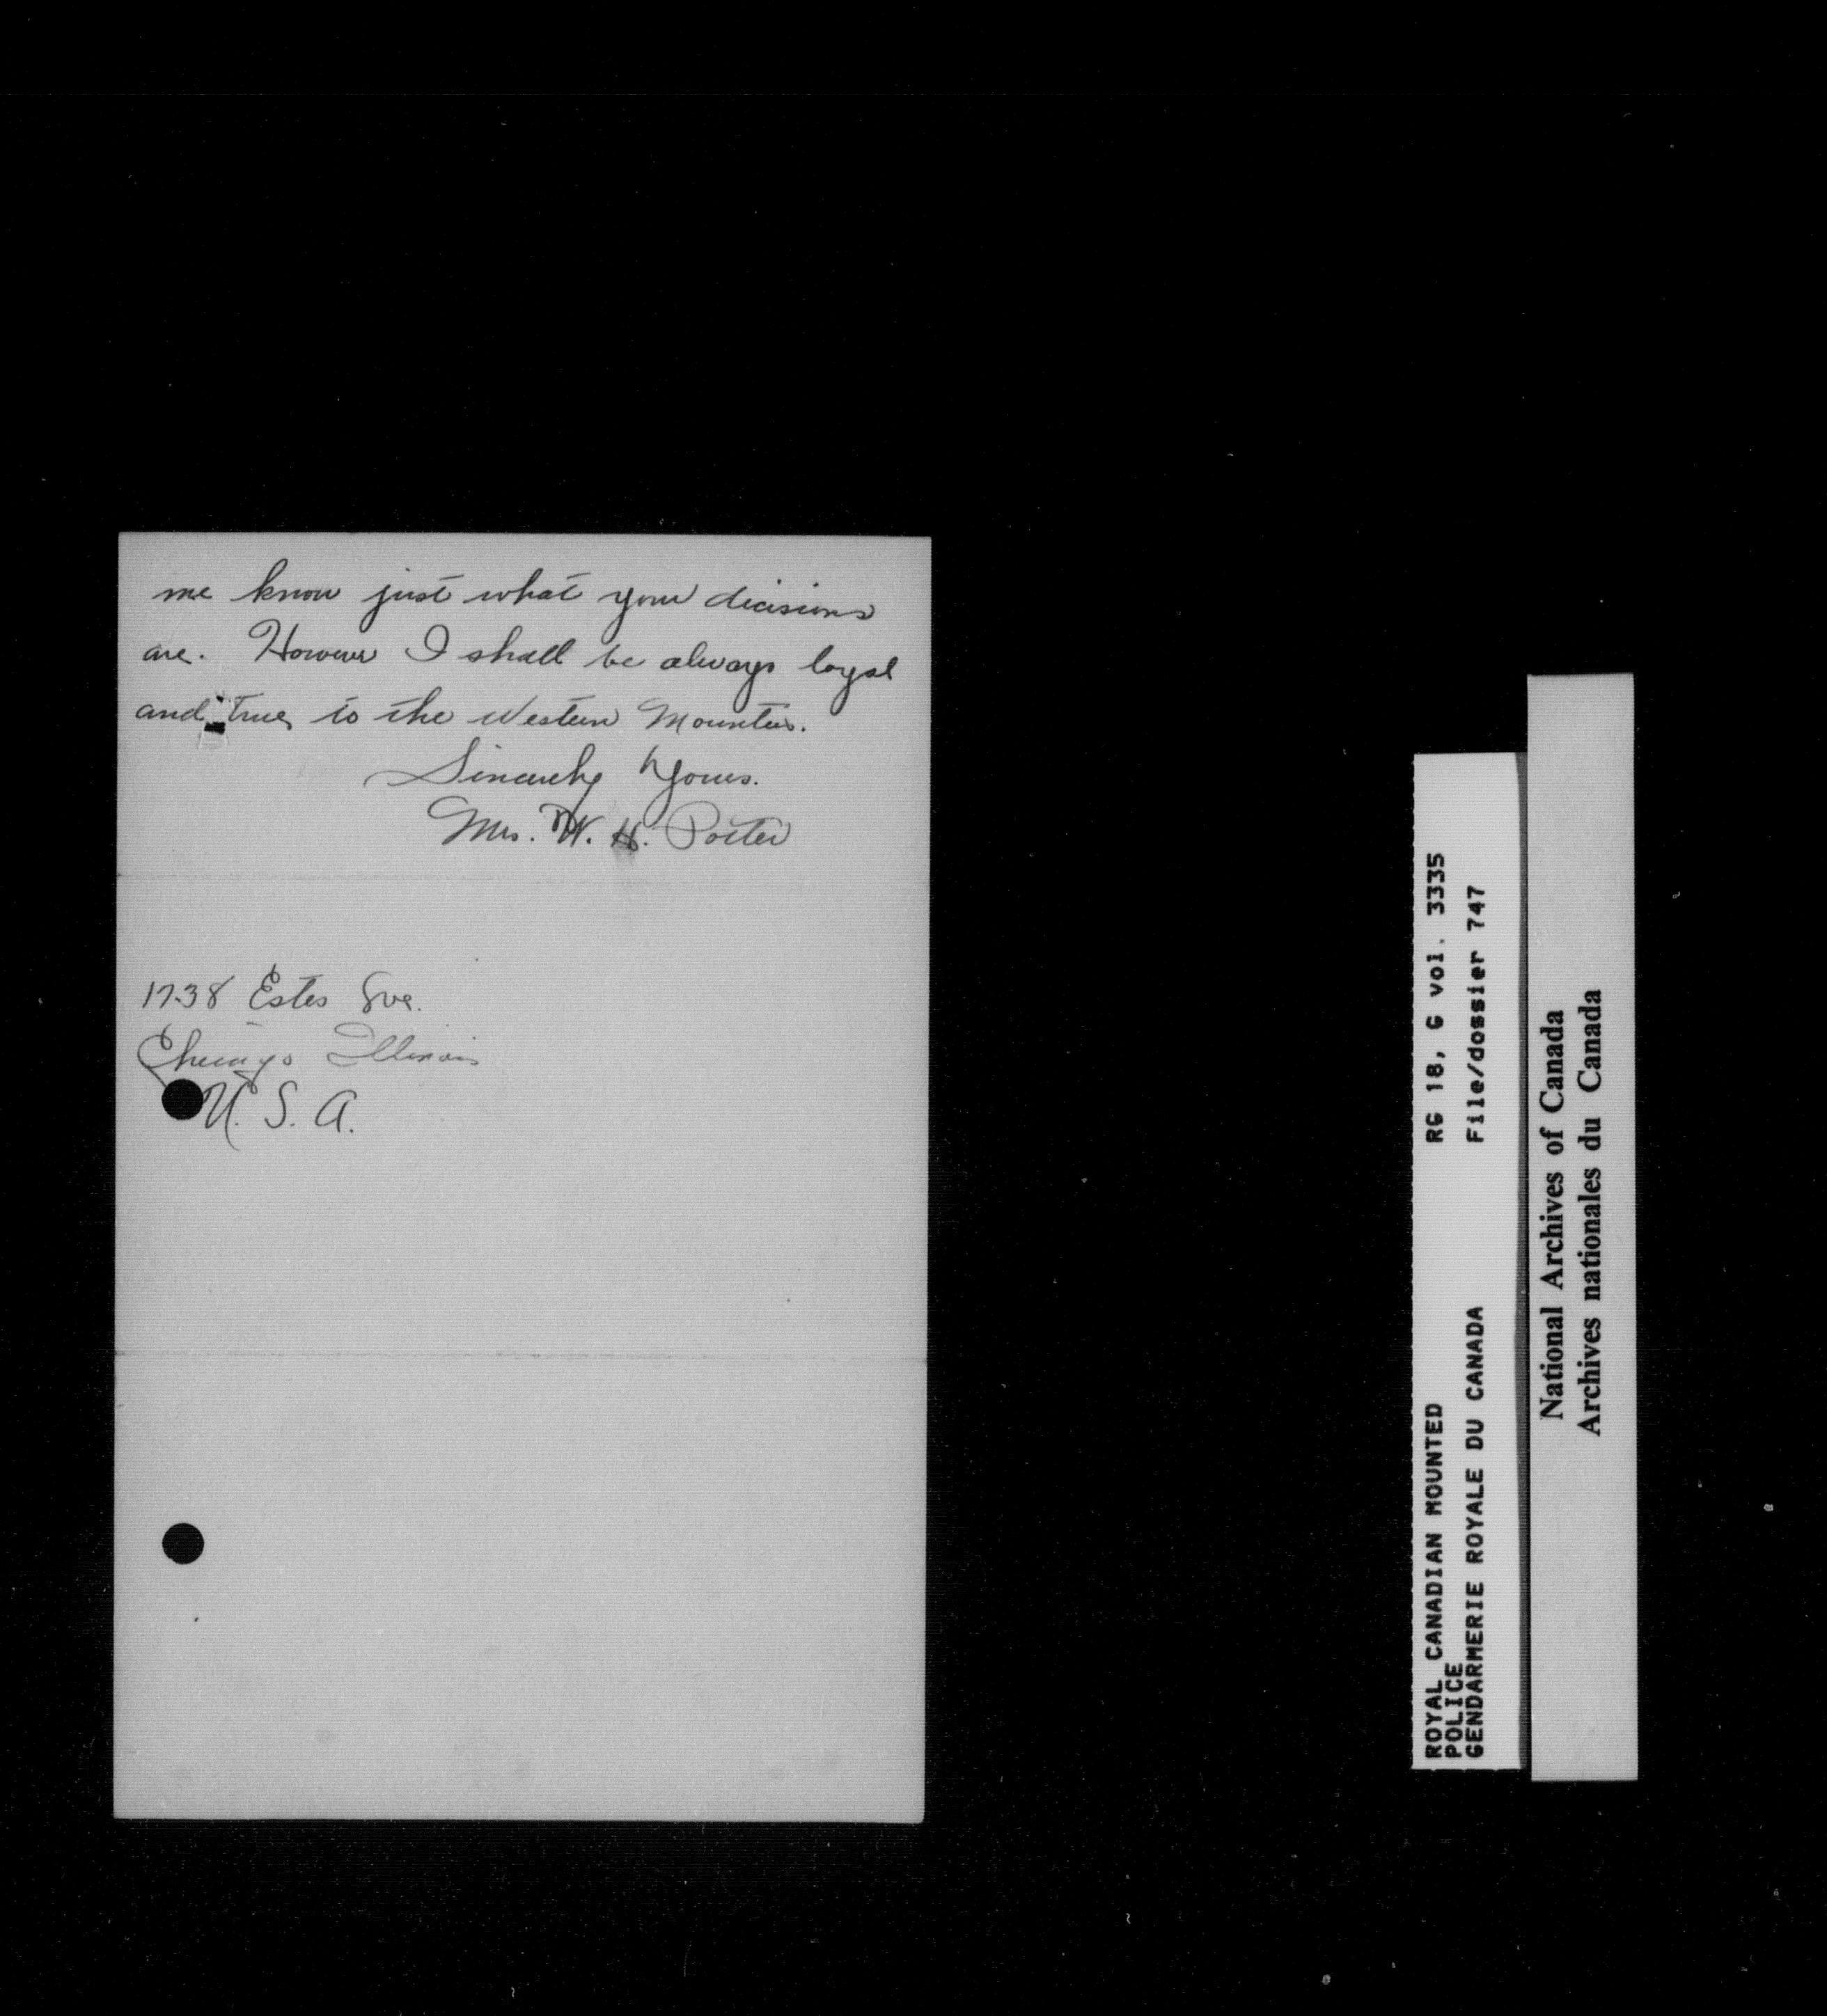 me know just what your dicisions
are. However I shall be always loyal
and true to the Western Mounties.
Sincerely Yours.
Mrs. W. H. Porter
1738 Estes Ave.
Chicago Illinois
U. S. A.
ROYAL CANADIAN MOUNTED
POLICE
GENDARMERIE ROYALE DU CANADA
RG 18, G vol. 3335
File/dossier 747
National Archives of Canada
Archives nationales du Canada